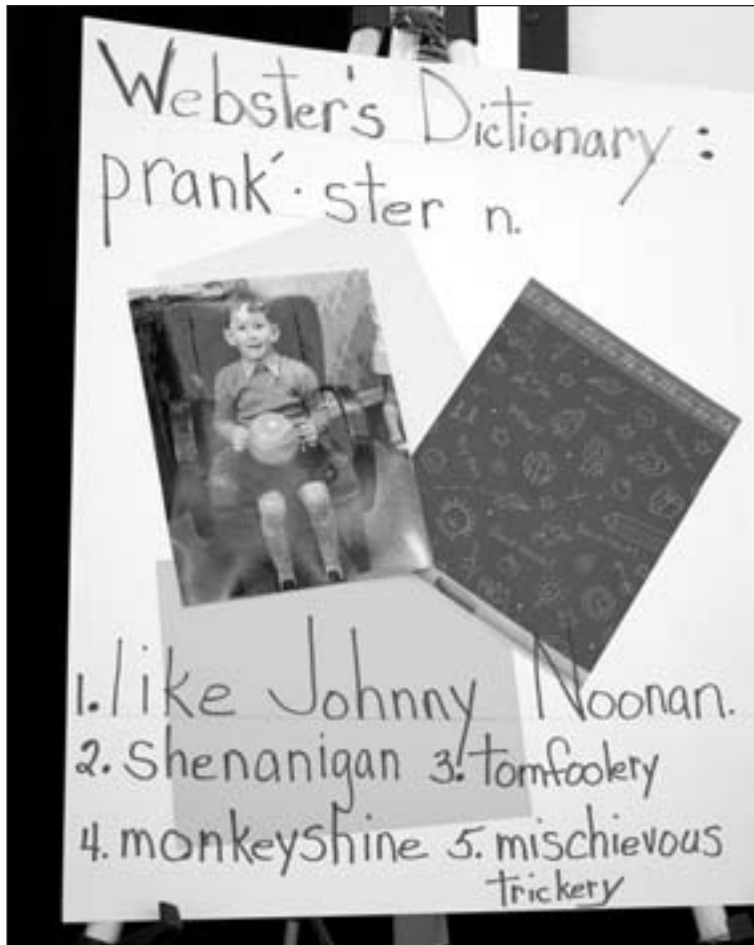 Webster's Dictionary :
prank´· ster n.
1. like Johnny Noonan.
2. Shenanigan 3. tomfoolery
4. monkeyshine 5. mischievous
trickery